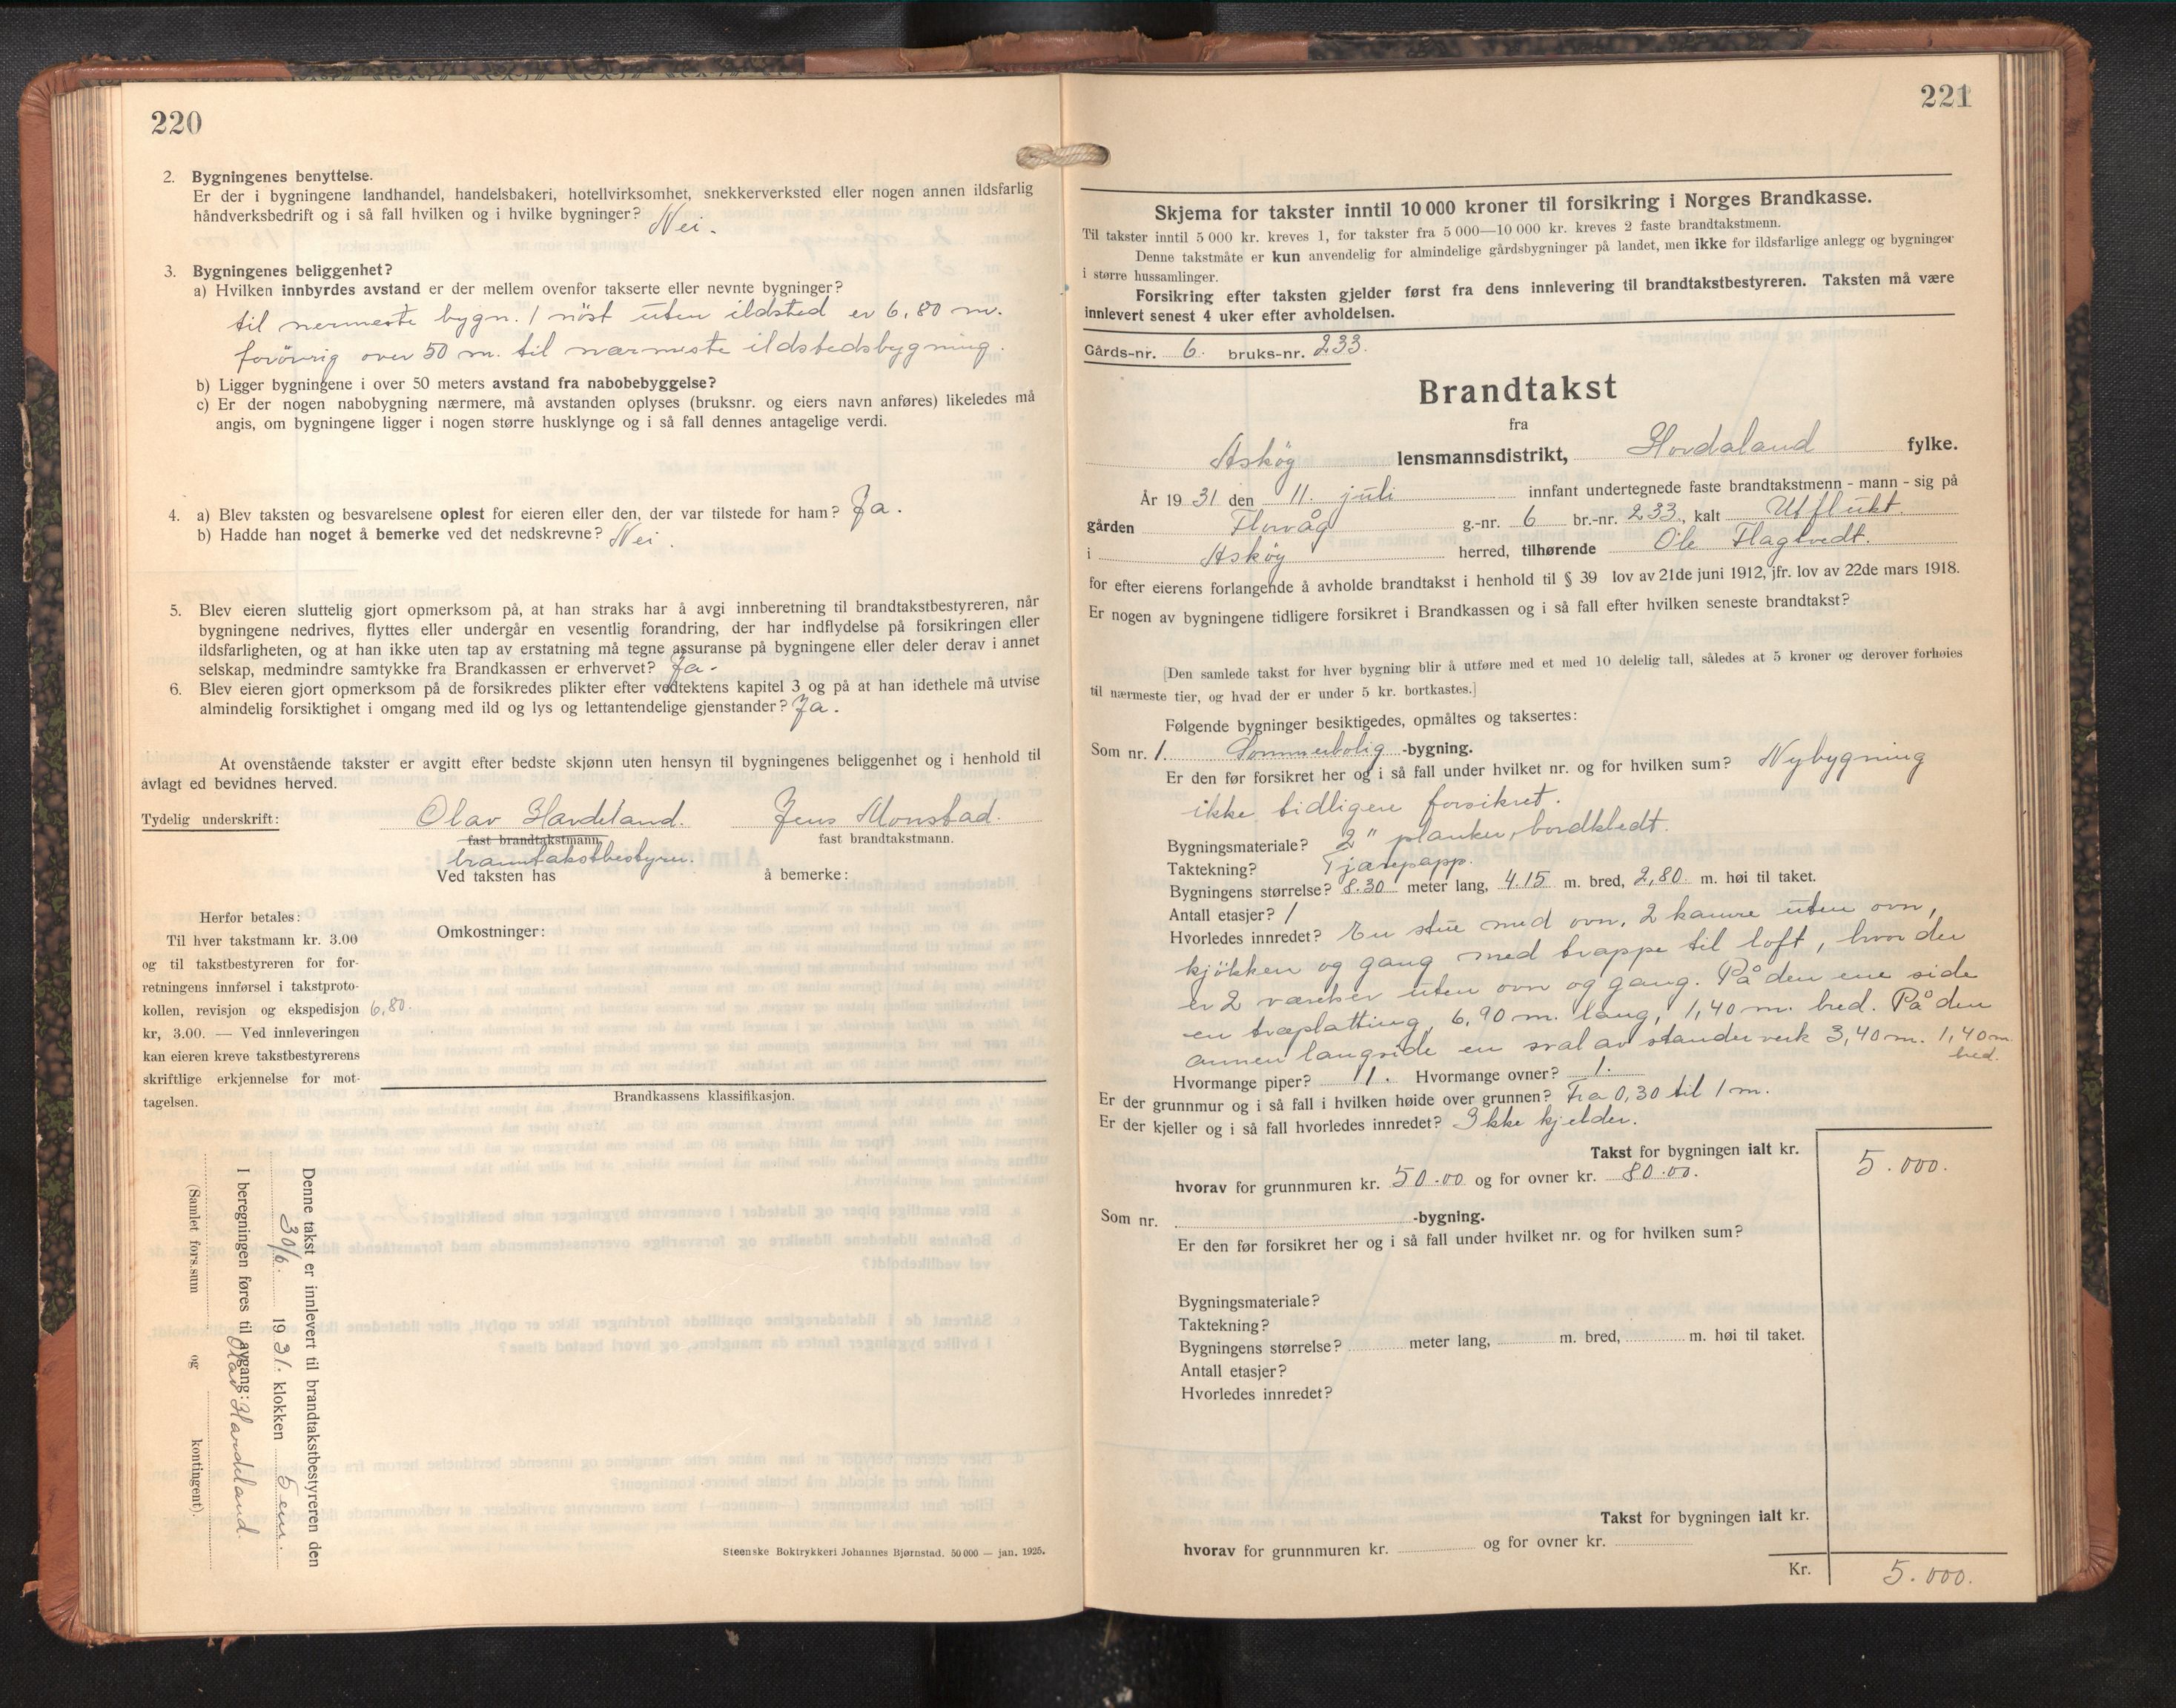 220
2. Bygningenes benyttelse.
Er der i bygningene landhandel, handelsbakeri, hotellvirksomhet, snekkerverksted eller nogen annen ildsfarlig
håndverksbedrift og i så fall hvilken og i hvilke bygninger? Nei.
3. Bygningenes beliggenhet?
a) Hvilken innbyrdes avstand er der mellem ovenfor takserte eller nevnte bygninger?
til nermeste bygn. 1 nöst uten ildsted er 6,80 m.
forövrig over 50 m. til nærmeste ildstedsbygning.
b) Ligger bygningene i over 50 meters avstand fra nabobebyggelse?
c) Er der nogen nabobygning nærmere, må avstanden oplyses (bruksnr. og eiers navn anføres) likeledes må
angis, om bygningene ligger i nogen større husklynge og i så fall dennes antagelige verdi.
4. a) Blev taksten og besvarelsene oplest for eieren eller den, der var tilstede for ham? Ja.
b) Hadde han noget å bemerke ved det nedskrevne? Nei.
5. Blev eieren sluttelig gjort opmerksom på, at han straks har å avgi innberetning til brandtakstbestyreren, når
bygningene nedrives, flyttes eller undergår en vesentlig forandring, der har indflydelse på forsikringen eller
ildsfarligheten, og at han ikke uten tap av erstatning må tegne assuranse på bygningene eller deler derav i annet
selskap, medmindre samtykke fra Brandkassen er erhvervet? Ja.
6. Blev eieren gjort opmerksom på de forsikredes plikter efter vedtektens kapitel 3 og på at han idethele må utvise
almindelig forsiktighet i omgang med ild og lys og lettantendelige gjenstander? Ja.
At ovenstående takster er avgitt efter bedste skjønn uten hensyn til bygningenes beliggenhet og i henhold til
avlagt ed bevidnes herved.
Tydelig underskrift: Olav Hardeland. Jens Monstad.
fast brandtakstmann, fast brandtakstmann.
branntakstbestyrer.
Ved taksten has å bemerke:
Herfor betales:
Til hver takstmann kr. 3.00
og til takstbestyreren for for-
retningens innførsel i takstproto-
kollen, revisjon og ekspedisjon 6,80.
kr, 3.00. — Ved innleveringen
kan eieren kreve takstbestyrerens
skriftlige erkjennelse for mot-
tagelsen.
Omkostninger:
Brandkassens klassifikasjon.
Denne takst er innlevert til brandtakstbestyreren den
30/6. 19 31. klokken 5 em.
I beregningen føres til avgang: Olav Hardeland.
(Samlet fors.sum og kontingent).
Steenske Boktrykkeri Johannes Bjørnstad. 50 000 — jan. 1925.
221
Skjema for takster inntil 10 000 kroner til forsikring i Norges Brandkasse.
Til takster inntil 5 000 kr. kreves 1, for takster fra 5 000—10 000 kr. kreves 2 faste brandtakstmenn.
Denne takstmåte er kun anvendelig for almindelige gårdsbygninger på landet, men ikke for ildsfarlige anlegg og bygninger
i større hussamlinger.
Forsikring efter taksten gjelder først fra dens innlevering til brandtakstbestyreren. Taksten må være
innlevert senest 4 uker efter avholdelsen.
Gårds-nr. 6. bruks-nr. 233.
Brandtakst
fra
Asköy lensmannsdistrikt, Hordaland fylke.
År 19 31 den 11. juli innfant undertegnede faste brandtakstmenn - mann - sig på
gården Florvåg g.-nr. 6 br.-nr. 233, kalt Utflukt.
i Asköy herred, tilhørende Ole Flagtvedt.
for efter eierens forlangende å avholde brandtakst i henhold til § 39 lov av 21de juni 1912, jfr. lov av 22de mars 1918.
Er nogen av bygningene tidligere forsikret i Brandkassen og i så fall efter hvilken seneste brandtakst?
[Den samlede takst for hver bygning blir å utføre med et med 10 delelig tall, således at 5 kroner og derover forhøies
til nærmeste tier, og hvad der er under 5 kr. bortkastes.]
Følgende bygninger besiktigedes, opmåltes og taksertes:
Som nr. 1. Sommerbolig -bygning.
Er den før forsikret her og i så fall under hvilket nr. og for hvilken sum? Nybygning
ikke tidligere forsikret.
Bygningsmateriale? 2" planker, bordkledt.
Taktekning? Tjærepapp.
Bygningens størrelse? 8.30 meter lang, 4.15 m. bred, 2,80 m. høi til taket.
Antall etasjer? 1
Hvorledes innredet? En stue med ovn, 2 kamre uten ovn,
kjökken og gang med trappe til loft, hvor der
er 2 værelser uten ovn og gang. På den ene side
en træplatting, 6,90 m. lang, 1,40 m. bred. På den
annen langside en sval av standerverk 3,40 m. 1,40 m.
bred.
Hvormange piper? 1. Hvormange ovner? 1.
Er der grunnmur og i så fall i hvilken høide over grunnen? Fra 0,30 til 1 m.
Er der kjeller og i så fall hvorledes innredet? Ikke kjelder.
Takst for bygningen ialt kr. 5.000.
hvorav for grunnmuren kr. 50.00 og for ovner kr. 80.00.
Som nr. -bygning.
Er den før forsikret her og i så fall under hvilket nr. og for hvilken sum?
Bygningsmateriale?
Taktekning?
Bygningens størrelse? meter lang, m. bred, m. høi til taket.
Antall etasjer?
Hvorledes innredet?
Takst for bygningen ialt kr.
hvorav for grunnmuren kr. og for ovner kr.
Kr. 5.000.